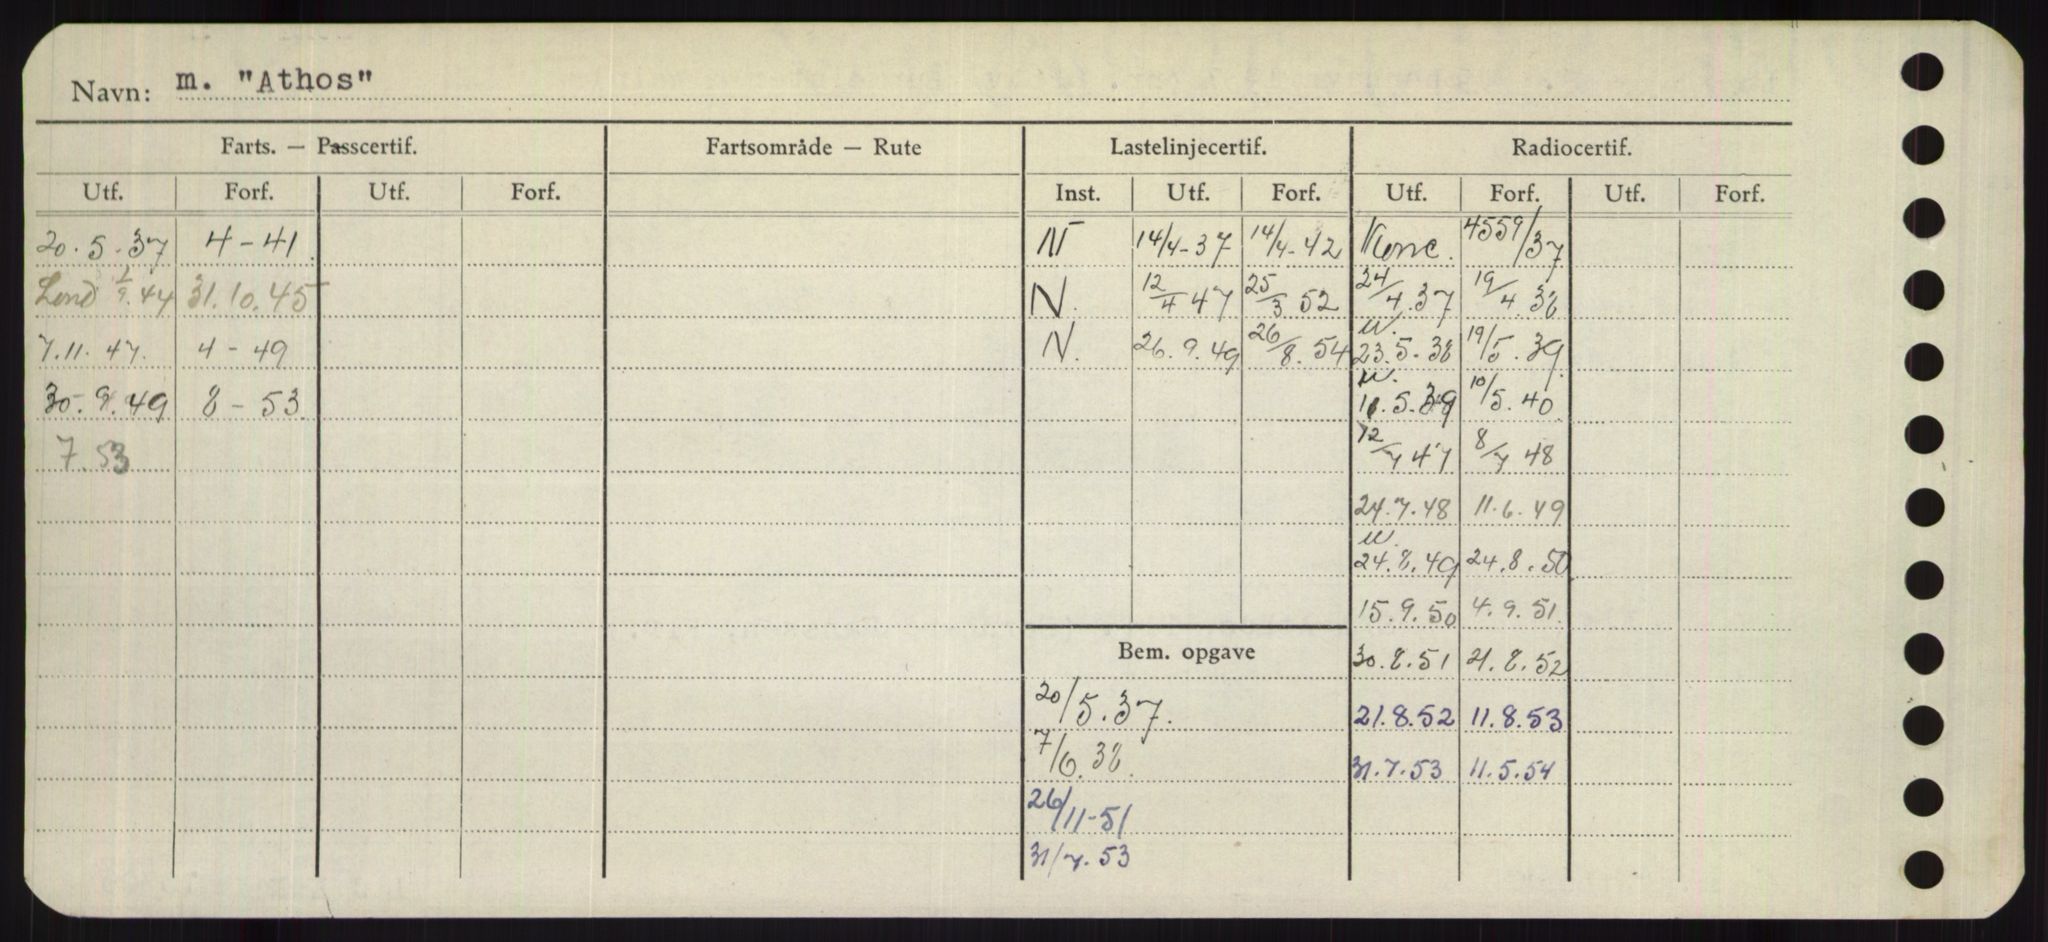 Navn: m. "Athos"
Farts. — Passcertif. Fartsområde — Rute Lastelinjecertif. Radiocertif.
Utf. Forf. Utf. Forf. Inst. Utf. Forf. Utf. Forf. Utf. Forf.
20.5.37 4-41 N 14/4-37 14/4-42 4559/37
Lond 1/9.44 31.10.45 N. 12/4 47 25/3 52 24/4.37 19/4.38
7.11.47. 4-49 N. 26.9.49 26/8.54 23.5.38 19/5.39
30.9.49 8-53 11.5.39 10/5.40
7.53 12/7 47 8/7 48
24.7.48 11.6.49
24.8.49 24.8.50
15.9.50 4.9.51
Bem. opgave 30.8.51 21.8.52
20/5.37. 21.8.52 11.8.53
7/6.38. 31.7.53 11.5.54
26/11-51
31/7.53